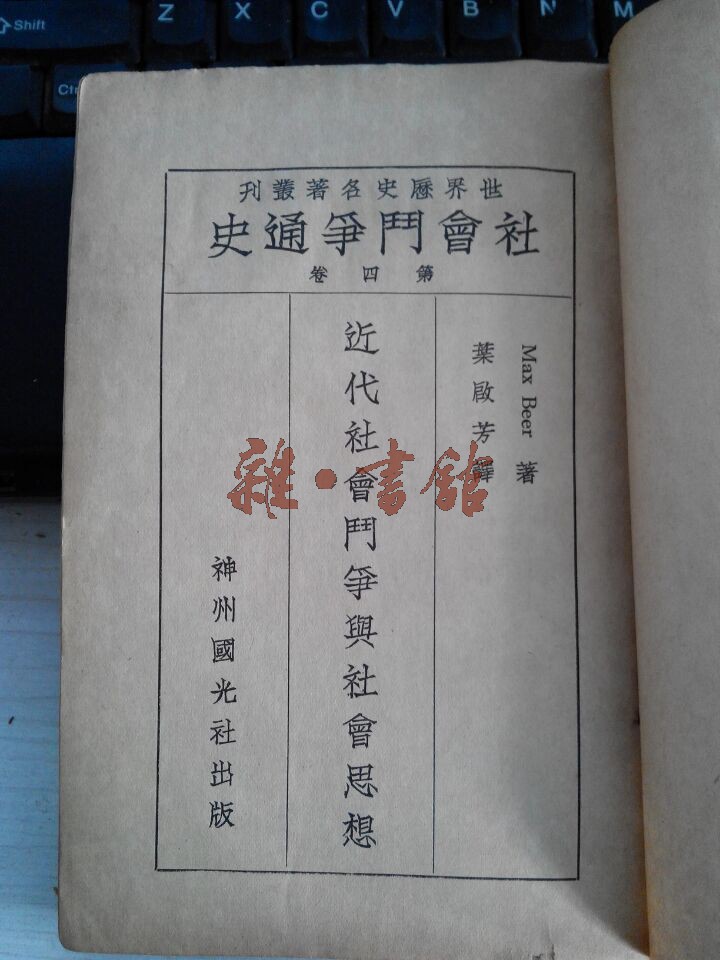 Shift
Z X C V B N M
Ctr
世界歷史名著叢刊
社會鬥爭通史
第四卷
Max Beer 著
葉啟芳譯
近代社會鬥爭與社會思想
神州國光社出版
雜·書館